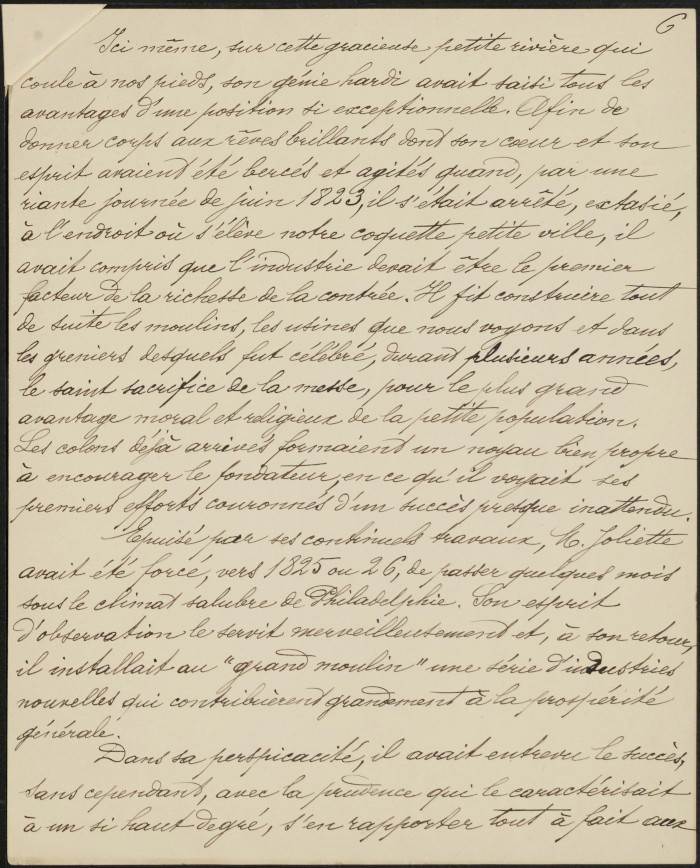 6
Ici même, sur cette gracieuse petite rivière qui
coule à nos pieds, son génie hardi avait saisi tous les
avantages d'une position si exceptionnelle. Afin de
donner corps aux rêves brillants dont son cœur et son
esprit avaient été bercés et agités quand, par une
riante journée de juin 1823, il s'était arrêté, extasié,
à l'endroit où s'élève notre coquette petite ville, il
avait compris que l'industrie devait être le premier
facteur de la richesse de la contrée. Il fit construire tout
de suite les moulins, les usines que nous voyons et dans
les greniers desquels fut célébré, durant plusieurs années,
le saint sacrifice de la messe, pour le plus grand
avantage moral et religieux de la petite population.
Les colons déjà arrivés formaient un noyau bien propre
à encourager le fondateur, en ce qu'il voyait ses
premiers efforts couronnés d'un succès presque inattendu.
Epuisé par ses continuels travaux, M. Joliette
avait été forcé, vers 1825 ou 26, de passer quelques mois
sous le climat salubre de Philadelphie. Son esprit
d'observation le servit merveilleusement et, à son retour,
il installait au "grand moulin" une série d'industries
nouvelles qui contribuèrent grandement à la prospérité
générale.
Dans sa perspicacité, il avait entrevu le succès,
sans cependant, avec la prudence qui le caractérisait
à un si haut degré, s'en rapporter tout à fait aux